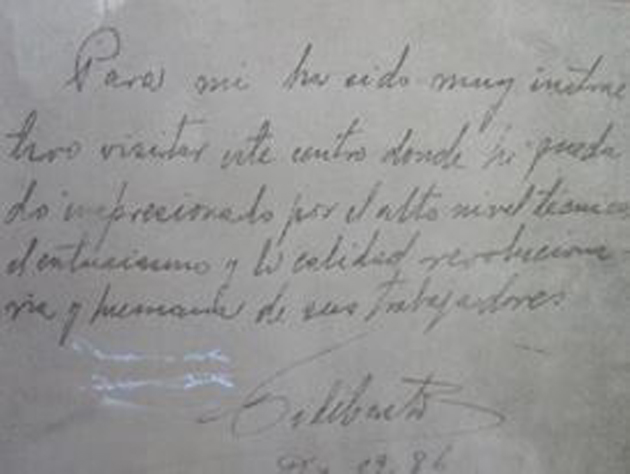 Para mi ha sido muy instruc
tivo visitar este centro donde he queda
do impresionado por el alto nivel técnico
el entusiasmo y la calidad revoluciona-
ria y humana de sus trabajadores
86